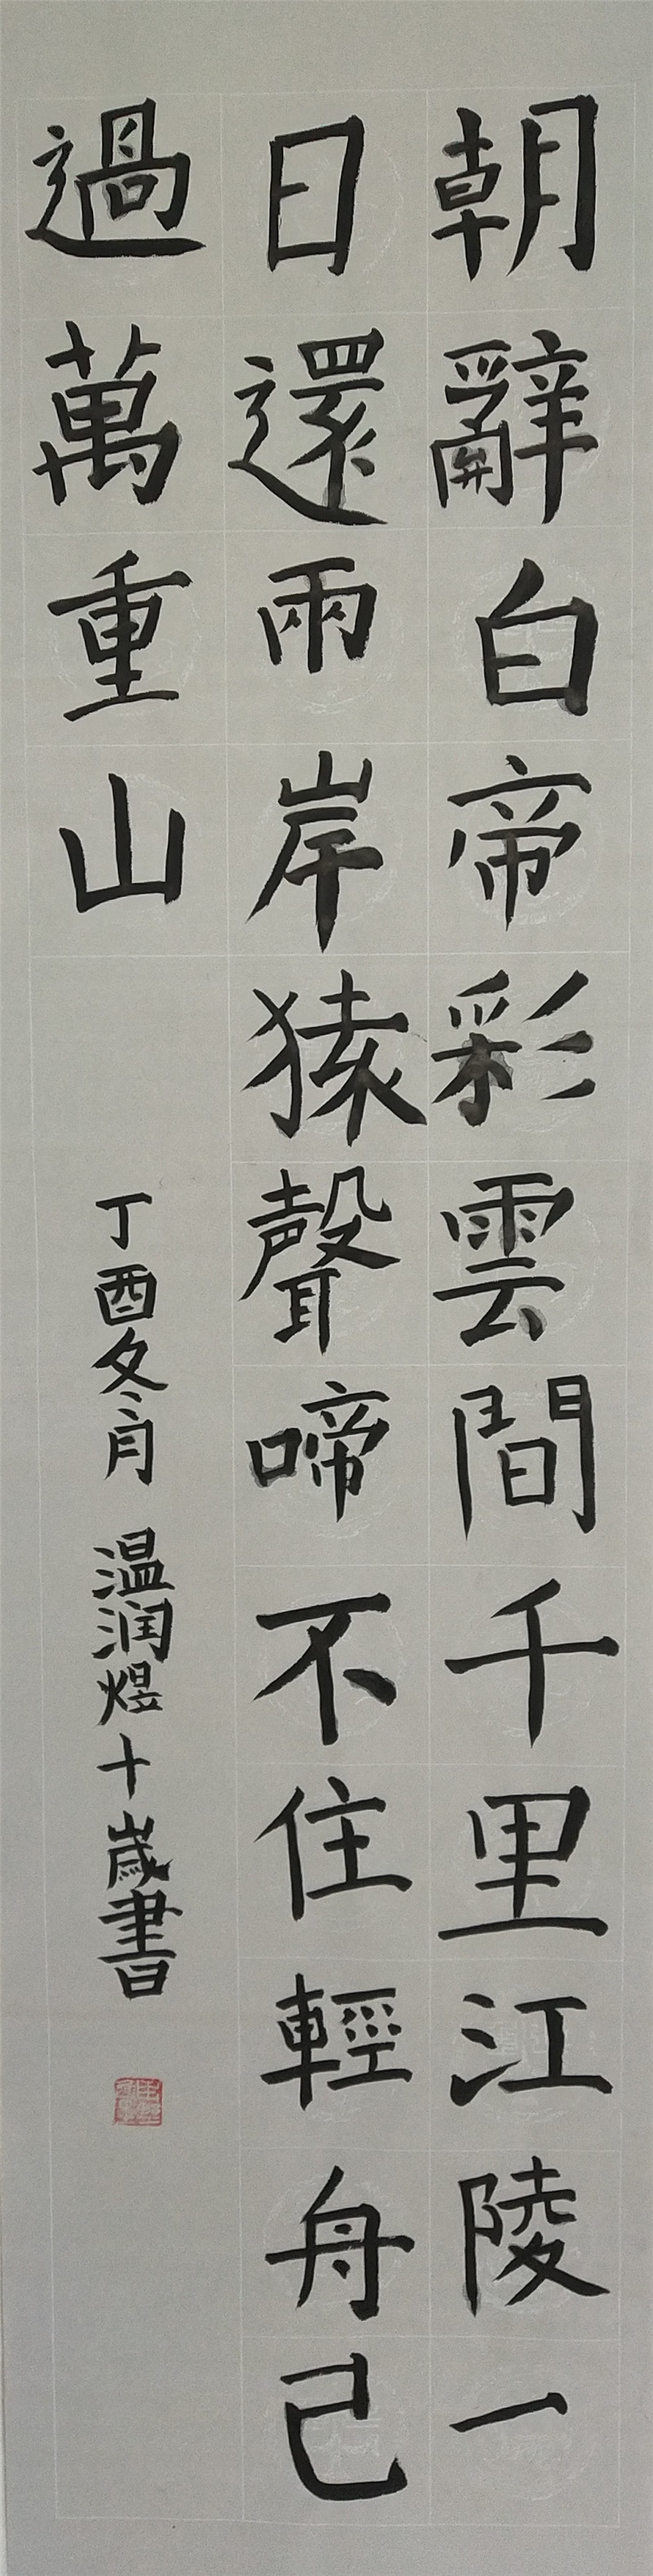 朝辭白帝彩雲間千里江陵一
日還兩岸猿聲啼不住輕舟已
過萬重山
丁酉冬月 温润煜十歲書